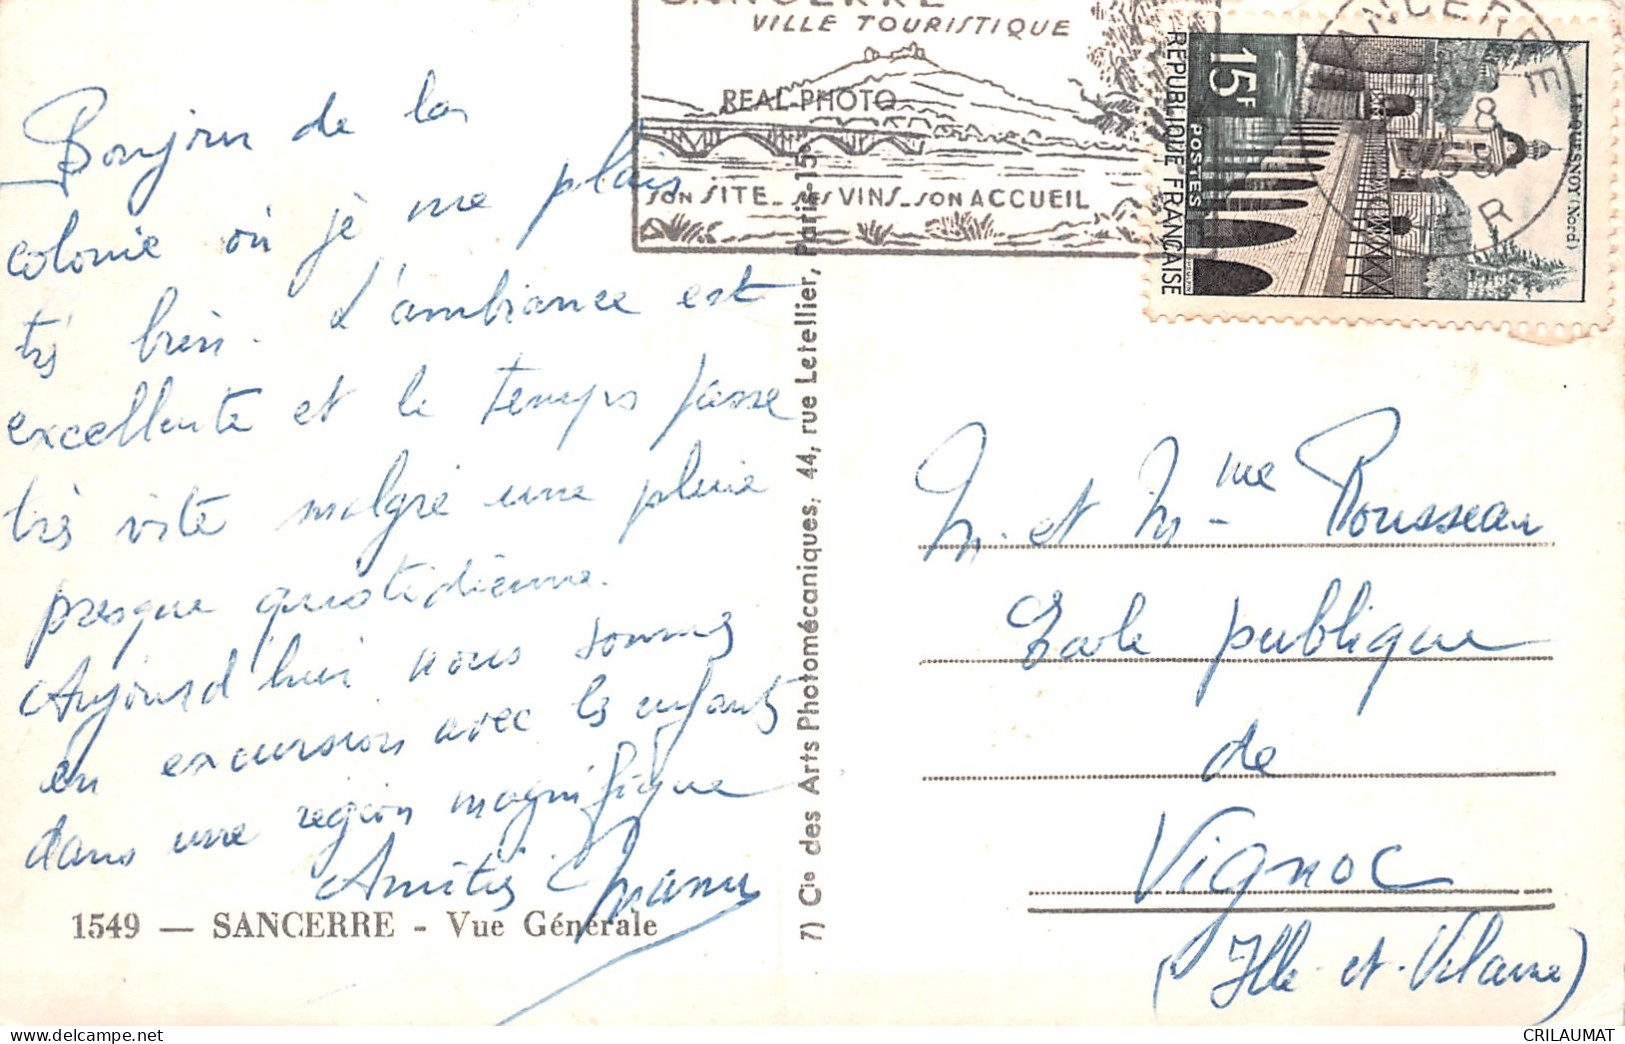 Bonjour de la
colonie où je me plais
très bien. L'ambiance est
excellente et le temps passe
très vite malgré une pluie
presque quotidienne.
Aujourd'hui nous sommes
en excursion avec les enfants
dans une région magnifique
Amitiés
1549 — SANCERRE - Vue Générale
7) Cie des Arts Photomécaniques, 44, rue Letellier, Paris-15e
SANCERRE
VILLE TOURISTIQUE
REAL-PHOTO
SON SITE - SES VINS - SON ACCUEIL
15F
POSTES
REPUBLIQUE FRANÇAISE
LE QUESNOY (Nord)
SANCERRE
CHER
M. et Mme Rousseau
Ecole publique
de
Vignoc
(Ille-et-Vilaine)
CRILAUMAT